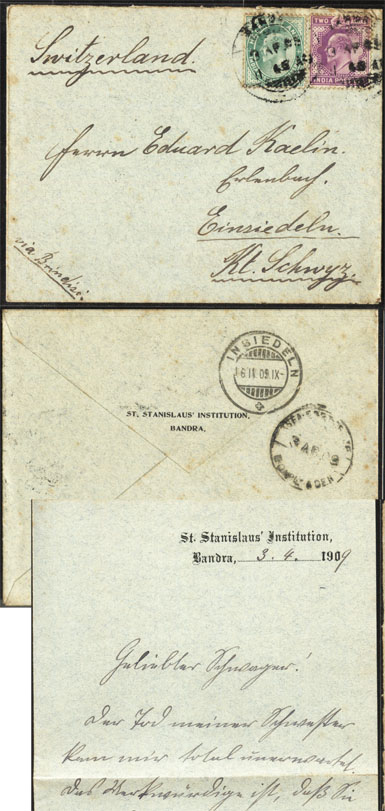 Switzerland.
TWO
INDIA
Herrn Eduard Kaelin.
Erlenbach.
Einsiedeln.
Kt. Schwyz.
via Brindisi.
EINSIEDELN
ST. STANISLAUS' INSTITUTION,
BANDRA,
St. Stanislaus' Institution,
Bandra, 3. 4. 1909
Geliebter Schwager!
Der Tod meiner Schwester
kam mir total unerwartet.
Das Merkwürdige ist, daß Sie